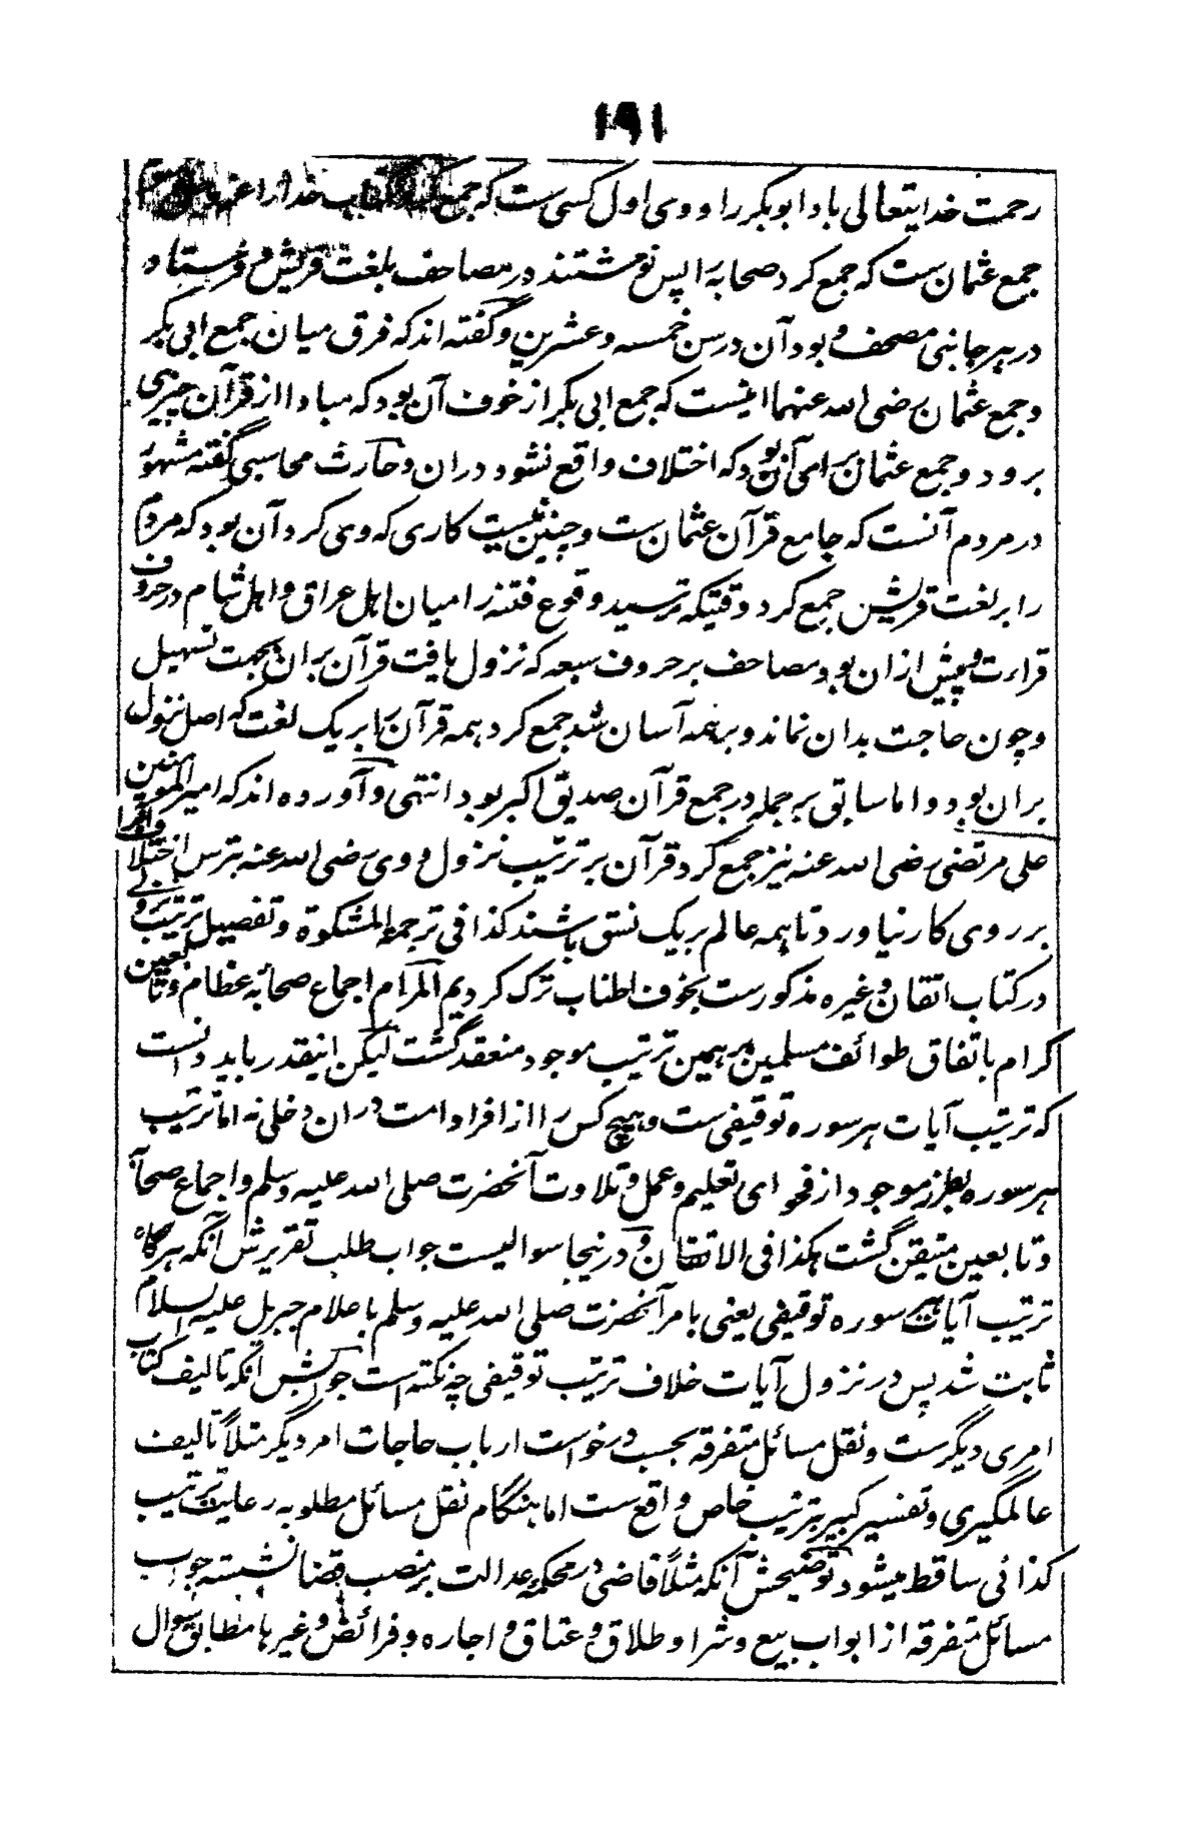 ۱۹۱
رحمت خدایتعالی باد ابوبکر را و وی اول کسی ست که جمع کتاب خدا را
جمع عثمان ست که جمع کرد صحابه را پس نوشتند در مصاحف بلغت قریش و فرستاد
در هر جانبی مصحف و بود آن در سن خمسه و عشرین و گفته اند که فرق میان جمع ابی بکر
و جمع عثمان رضی الله عنهما اینست که جمع ابی بکر از خوف آن بود که مبادا از قرآن چیزی
برود و جمع عثمان برای آن بود که اختلاف واقع نشود دران و حارث محاسبی گفته مشهور
در مردم آنست که جامع قرآن عثمان ست و چنین نیست کاری که وی کرد آن بود که مردم
را بر لغت قریش جمع کرد وقتیکه ترسید وقوع فتنه را میان اهل عراق و اهل شام در حروف
قراءت و پیش ازان بود مصاحف بر حروف سبعه که نزول یافت قرآن بران بجهت تسهیل
و چون حاجت بدان نماند و بر همه آسان شد جمع کرد همه قرآن را بر یک لغت که اصل نزول
بران بود و اما سابق بر جمله در جمع قرآن صدیق اکبر بود انتهی و آورده اند که امیر المومنین
علی مرتضی رضی الله عنه نیز جمع کرد قرآن بر ترتیب نزول و وی رضی الله عنه بترس اختلاف
بر روی کار نیاورد تا همه عالم بر یک نسق باشند کذا فی ترجمة المشکوة و تفصیل ترتیب نزولی
در کتاب اتقان و غیره مذکورست بخوف اطناب ترک کردیم المرام اجماع صحابه عظام و تابعین
کرام باتفاق طوائف مسلمین بر همین ترتیب موجود منعقد گشت لیکن اینقدر باید دانست
که ترتیب آیات هر سوره توقیفی ست و هیچ کس را از افراد امت دران دخلی نه اما ترتیب
هر سوره بطرز موجود از فحوای تعلیم و عمل و تلاوت آنحضرت صلی الله علیه وسلم و اجماع صحابه
و تابعین متیقن گشت هکذا فی الاتقان و درینجا سوالیست جواب طلب تقریرش آنکه هرگاه
ترتیب آیات سوره توقیفی یعنی بامر آنحضرت صلی الله علیه وسلم باعلام جبریل علیه السلام
ثابت شد پس در نزول آیات خلاف ترتیب توقیفی چه نکته است جوابش آنکه تالیف کتاب
امری دیگرست و نقل مسائل متفرقه بحسب درخواست ارباب حاجات امر دیگر مثلاً تالیف
عالمگیری و تفسیر کبیر بترتیب خاص واقع ست اما هنگام نقل مسائل مطلوبه رعایت ترتیب
کذائی ساقط میشود توضیحش آنکه مثلاً قاضی در محکمه عدالت بر منصب قضا نشسته جواب
مسائل متفرقه از ابواب بیع و شرا و طلاق و عتاق و اجاره و فرائض و غیرها مطابق سوال